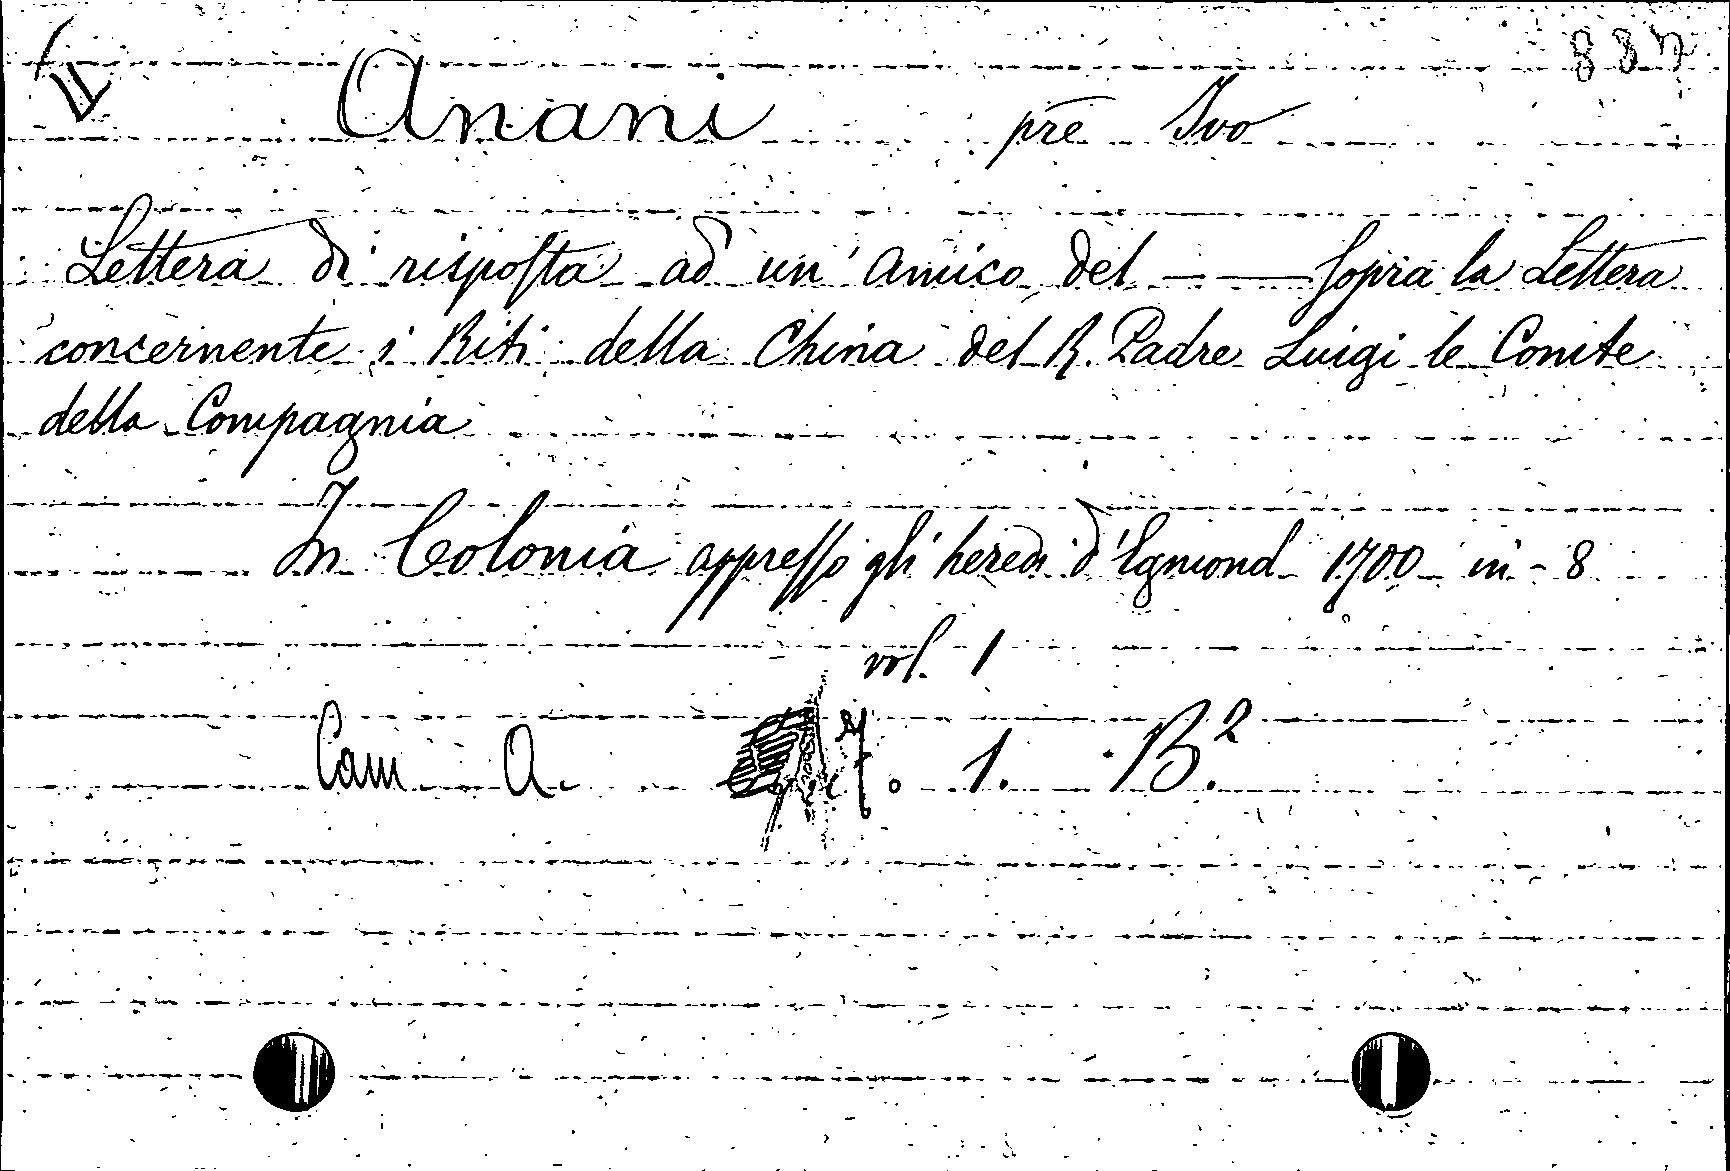 887
Anani pre Ivo
Lettera di risposta ad un' Amico del — — sopra la Lettera
concernente i Riti della China del R. Padre Luigi le Comte
della Compagnia
In Colonia appresso gli heredi d'Egmond 1700 in-8
vol. 1
Cam A. 7. 1. B.2